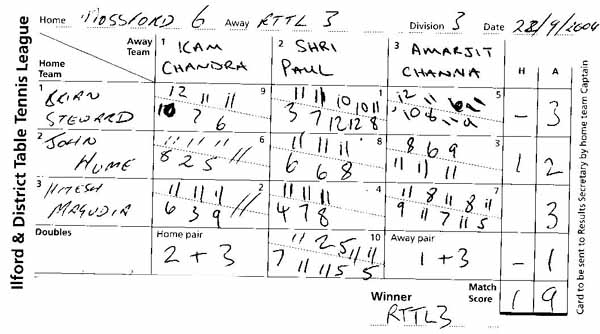 Home MOSSFORD 6 Away RTTL 3 Division 3 Date 28/9/2004
Ilford & District Table Tennis League
Away Team 1 KAM CHANDRA 2 SHRI PAUL 3 AMARJIT CHANNA H A
Home Team
1 BRIAN STEWARD 9 1 5 - 3
12 11 11 11 11 10 10 11 12 11
10 7 6 3 7 12 12 8 10 6
2 JOHN HUME 6 8 3 1 2
11 11 11 11 11 11 8 6 9
8 2 5 6 6 8 11 11 11
3 HITESH MAGUDIA 2 4 7 3
11 11 11 11 11 11 11 8 11 8 11
6 3 9 4 7 8 9 11 7 11 5
Doubles Home pair 2 + 3 10 Away pair 1 + 3 - 1
11 2 5 11 11
7 11 11 5 5
Winner RTTL 3 Match Score 1 9
Card to be sent to Results Secretary by home team Captain